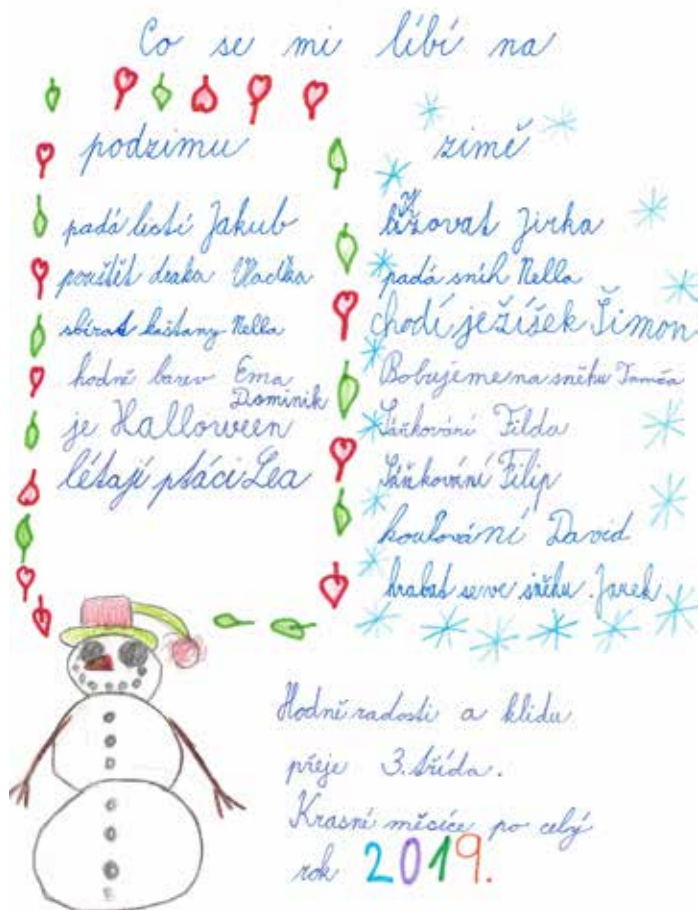 Co se mi líbí na
podzimu
padá listí Jakub
pouštět draka Vlaďka
sbírat kaštany Nella
hodně barev Ema
Dominik
je Halloween
létají ptáci Lea
zimě
lyžovat Jirka
padá sníh Nella
chodí ježíšek Šimon
Bobujeme na sněhu
Sáňkování Filda
Sáňkování Filip
koulování David
hrabat se ve sněhu. Jarek
Hodně radosti a klidu
přeje 3. třída.
Krasné měsíce po celý
rok 2019.